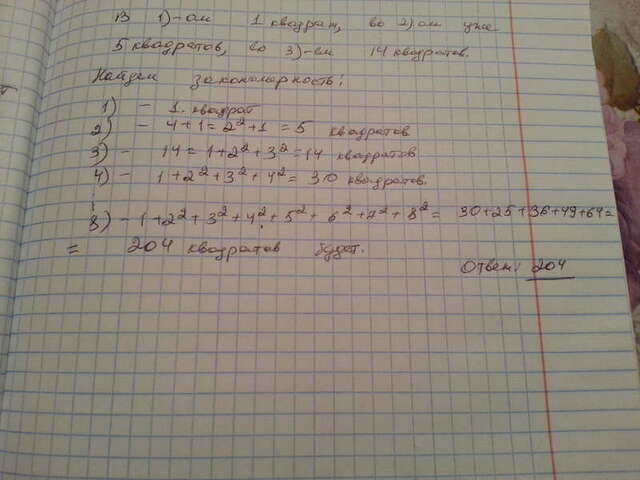 В 1)-ом 1 квадрат, во 2)ом уже
5 квадратов, во 3)-ем 14 квадратов.
Найдем закономерность:
1) - 1 квадрат
2) - 4+1 = 2²+1 = 5 квадратов
3) - 14 = 1+2²+3² = 14 квадратов
4) - 1+2²+3²+4² = 30 квадратов.
8) - 1+2²+3²+4²+5²+6²+7²+8² = 30+25+36+49+64 =
= 204 квадратов будет.
Ответ: 204